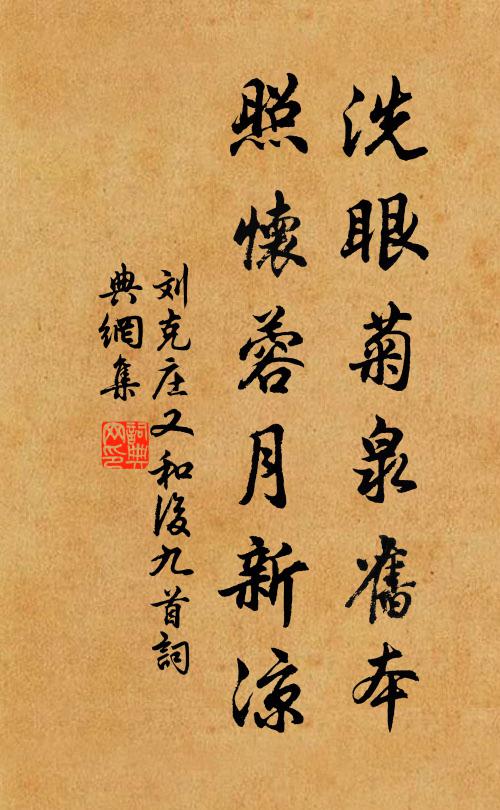 洗眼菊泉舊本
照懷蓉月新涼
刘克庄又和後九首詞
典網集
詞典網印